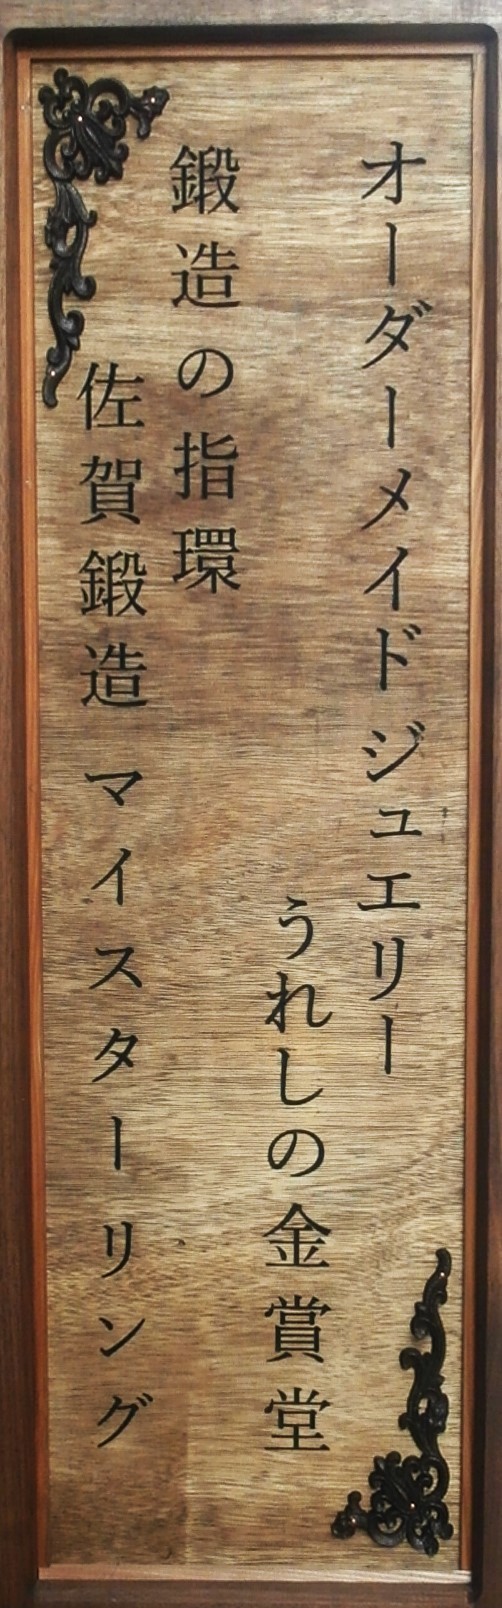 オーダーメイドジュエリー
うれしの金賞堂
鍛造の指環
佐賀鍛造マイスターリング